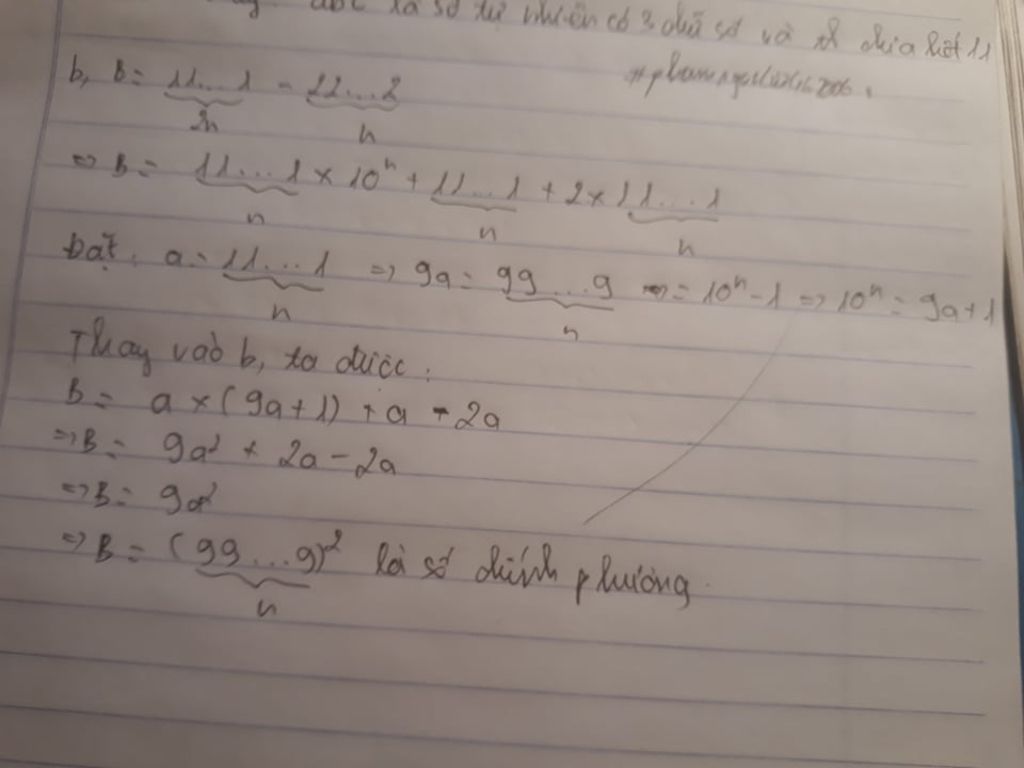 abc là số tự nhiên có 3 chữ số và chia hết 11
b, B = 11...1 - 22...2
2n n
=> B = 11...1 × 10^n + 11...1 + 2 × 11...1
n n n
Đặt: a = 11...1 => 9a = 99...9 = 10^n - 1 => 10^n = 9a + 1
n n
Thay vào b, ta được:
B = a × (9a + 1) + a - 2a
=> B = 9a² + 2a - 2a
=> B = 9a²
=> B = (99...9)² là số chính phương.
n